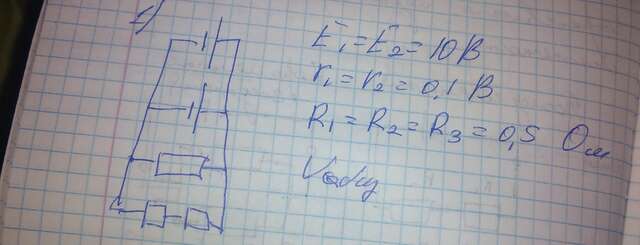 E₁ = E₂ = 10 В
r₁ = r₂ = 0,1 В
R₁ = R₂ = R₃ = 0,5 Ом